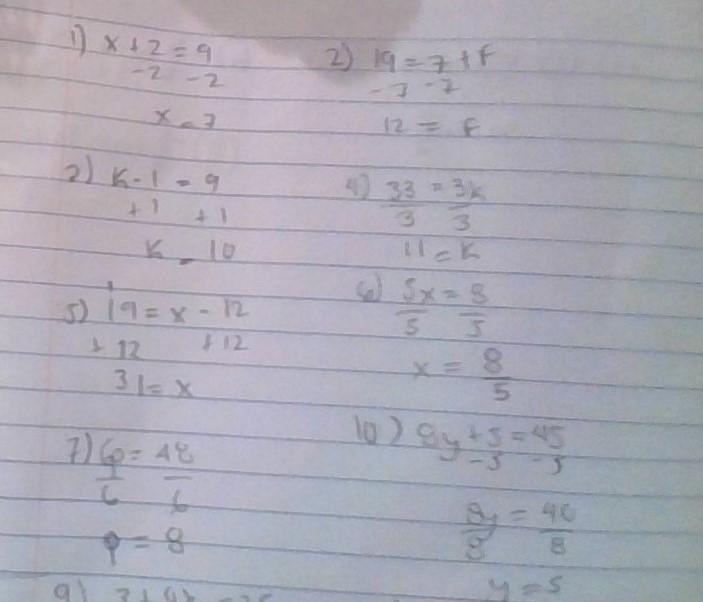 1) x + 2 = 9
-2 -2
x = 7
2) 19 = 7 + f
-7 -7
12 = f
2) k - 1 = 9
+1 +1
k = 10
4) 33 = 3k
3 3
11 = k
5) 19 = x - 12
+12 +12
31 = x
6) 5x = 8
5 5
x = 8
5
7) 6p = 48
6 6
p = 8
10) 8y + 5 = 45
-5 -5
8y = 40
8 8
y = 5
9)